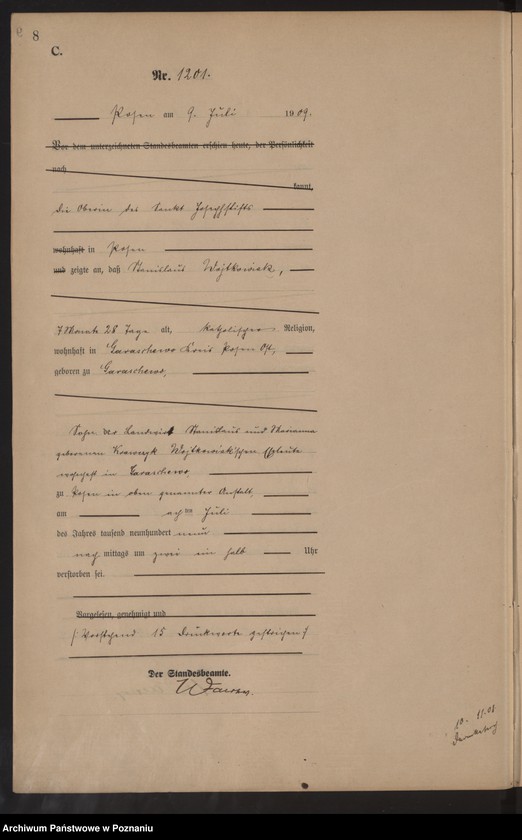 8
C.
Nr. 1201.
Posen am 9. Juli 1909.
Vor dem unterzeichneten Standesbeamten erschien heute, der Persönlichkeit
nach
kannt,
die Oberin des Sankt Josephstifts
wohnhaft in Posen
und zeigte an, daß Stanislaus Wojtkowiak,
7 Monate 28 Tage alt, katholischer Religion,
wohnhaft in Garaschewo Kreis Posen Ost,
geboren zu Garaschewo,
Sohn der Landwirt Stanislaus und Marianna
geborenen Krawczyk Wojtkowiak'schen Eheleute
wohnhaft in Garaschewo,
zu Posen in oben genannter Anstalt,
am achten Juli
des Jahres tausend neunhundert neun
nachmittags um zwei ein halb Uhr
verstorben sei.
Vorgelesen, genehmigt und
/: Vorstehend 15 Druckworte gestrichen :/
Der Standesbeamte.
Archiwum Państwowe w Poznaniu